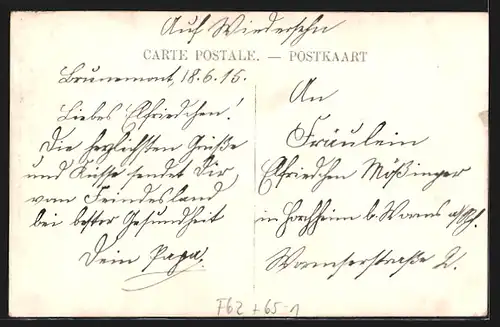 Auf Wiedersehn
CARTE POSTALE. — POSTKAART
Brunemont, 18.6.15.
Liebes Elfriedchen!
Die herzlichsten Grüße
und Küsse sendet Dir
vom Feindesland
bei bester Gesundheit
Dein Papa.
An
Fräulein
Elfriedchen Mößinger
in Horchheim b. Worms a/Rh.
Wormserstraße 2.
F62 + 65-1